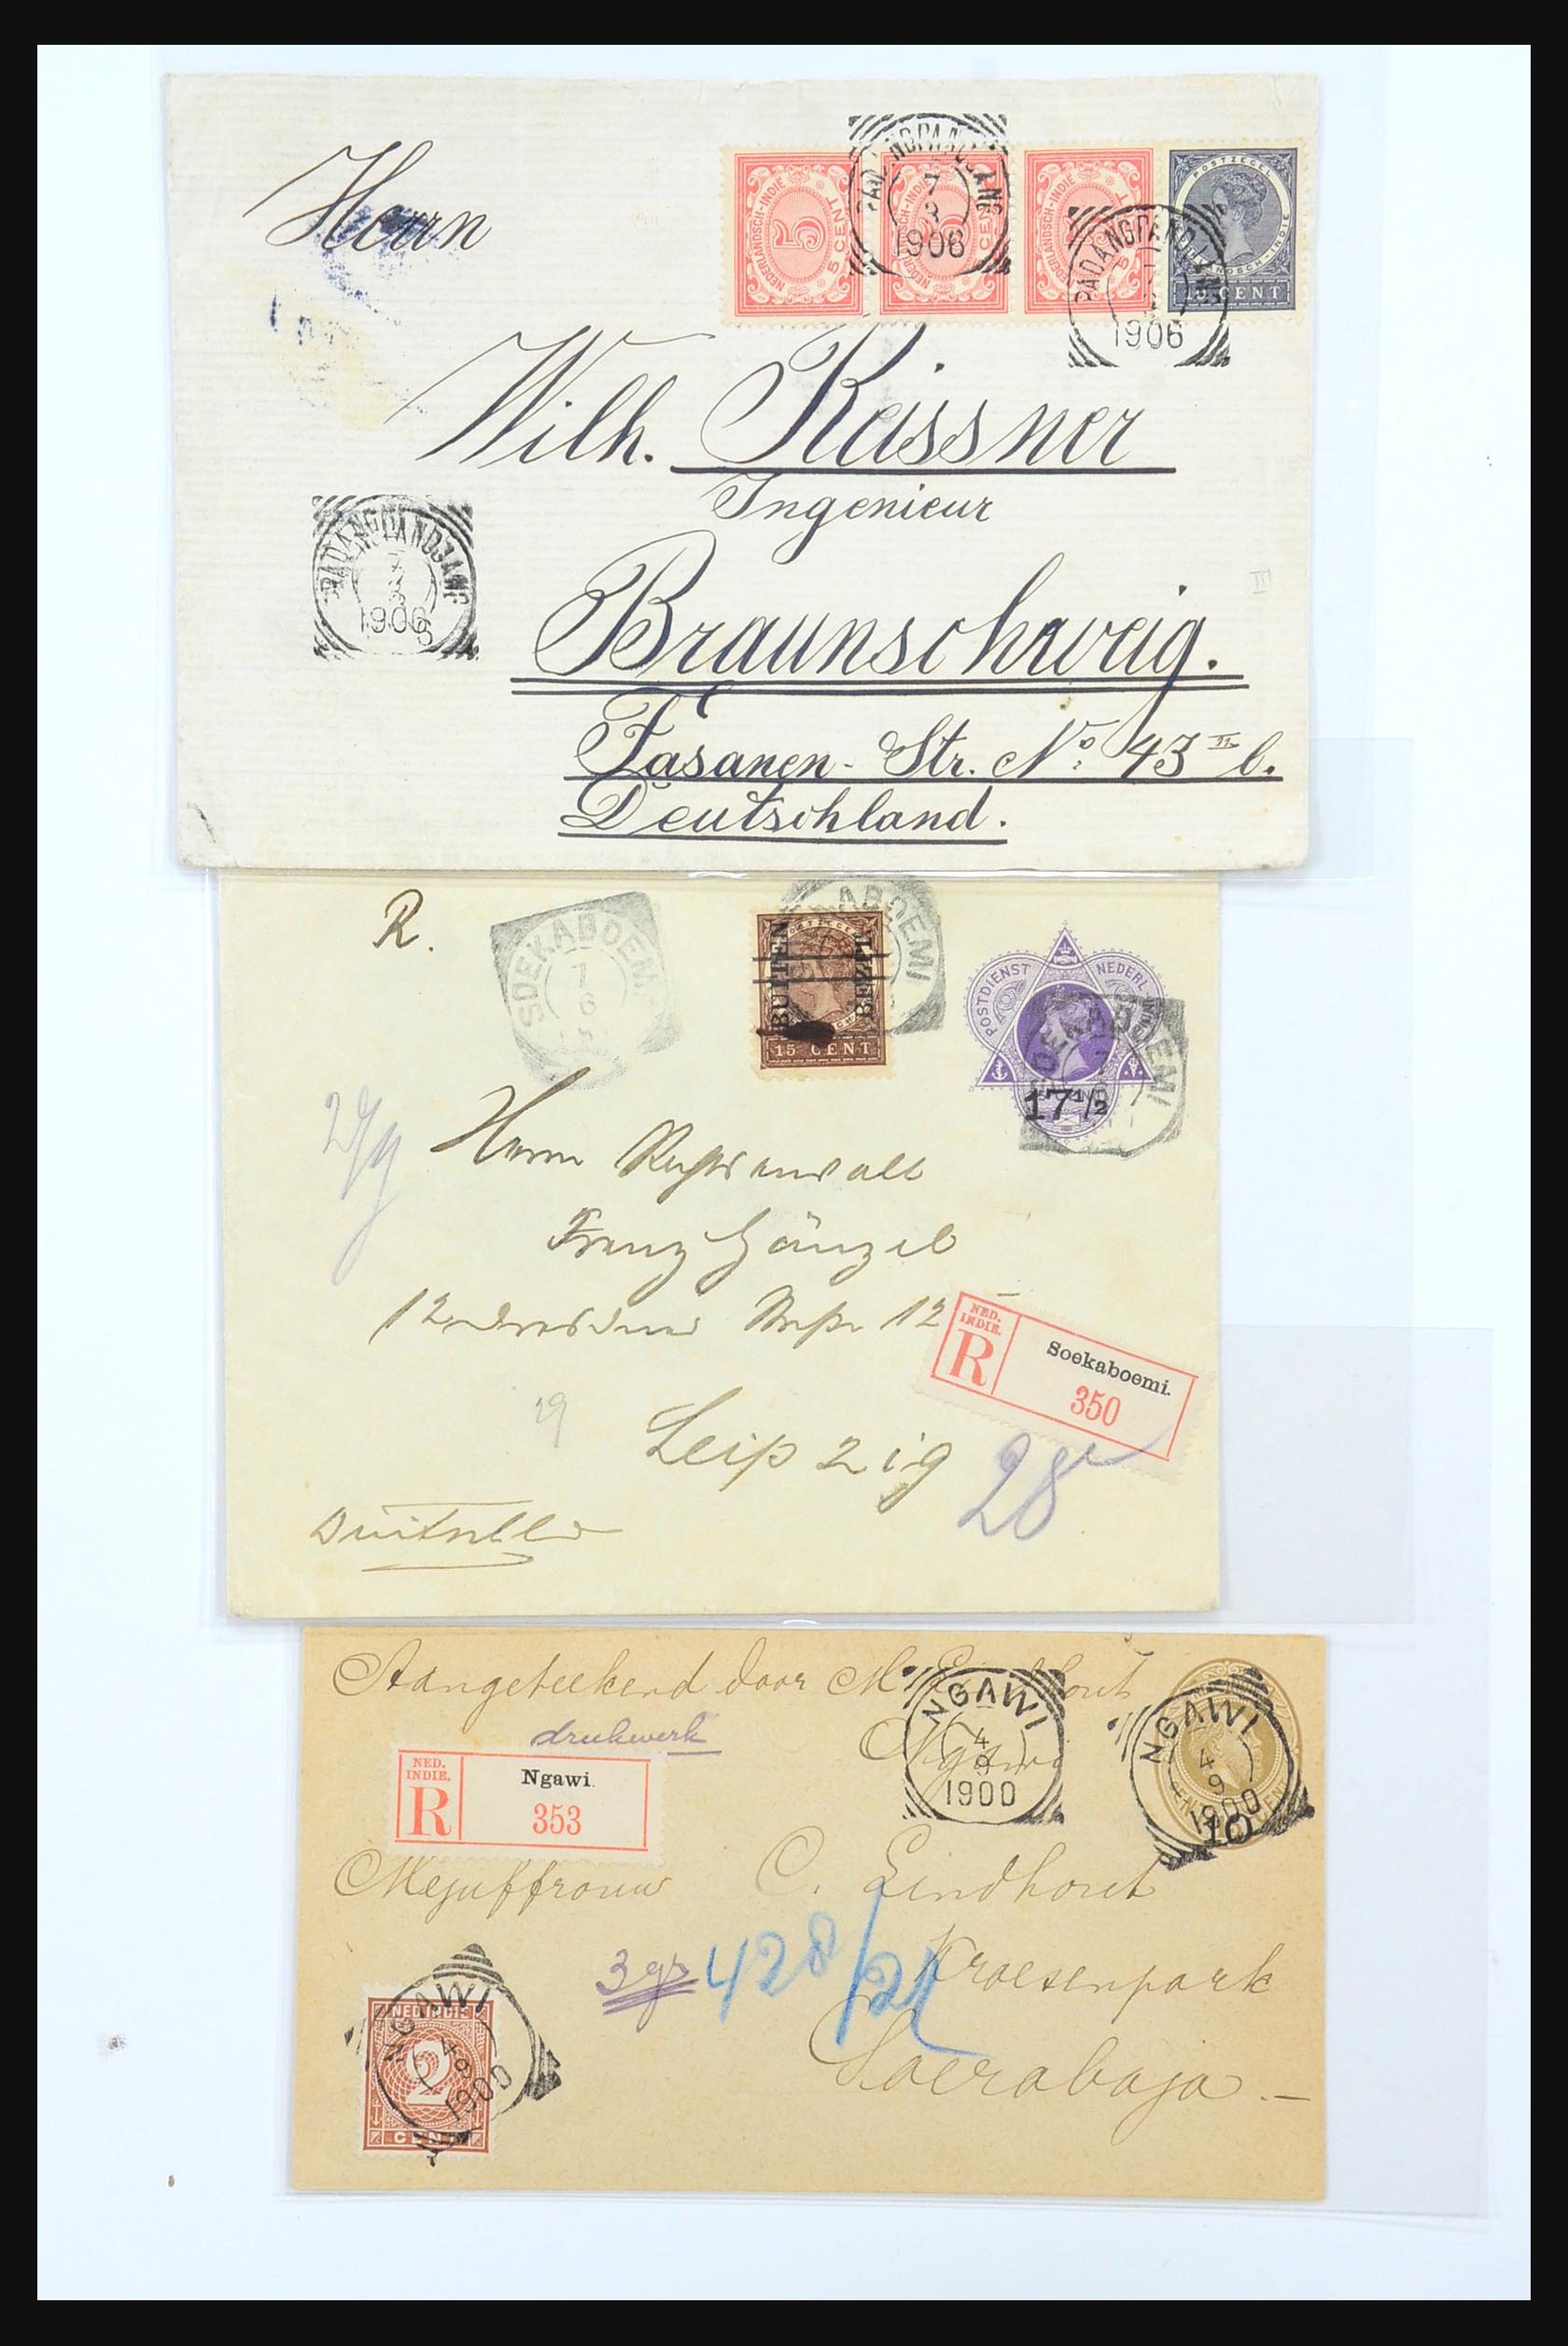 Herrn
NEDERLANDSCH-INDIE
5 CENT
5
NEDERLANDSCH-INDIE
5 CENT
NEDERLANDSCH-INDIE
5 CENT
POSTZEGEL
15 CENT
PADANGPANDJANG
7
3
1906
PADANGPANDJANG
1906
Wilh. Reissner
Ingenieur
PADANGPANDJANG
1906
Braunschweig.
Fasanen-Str. No: 43 II b.
Deutschland.
R.
SOEKABOEMI
7
6
BUITEN
BEZIT
15 CENT
POSTDIENST NEDERL.
SOEKABOEMI
17½
Herrn Rechtsanwalt
Franz Gänzel
12 Dresdner Straße 12
NED.
INDIE.
R
Soekaboemi.
350
Leipzig
28
Aangeteekend door M. Eindhout
drukwerk
Ngawi
NGAWI
4
9
1900
NGAWI
4
9
1900
10
NED.
INDIE.
R
Ngawi.
353
Mejuffrouw C. Eindhout
3 gr
428/21
Kroesenpark
Soerabaja.
NED. INDIE
2
CENT
NGAWI
4
9
1900